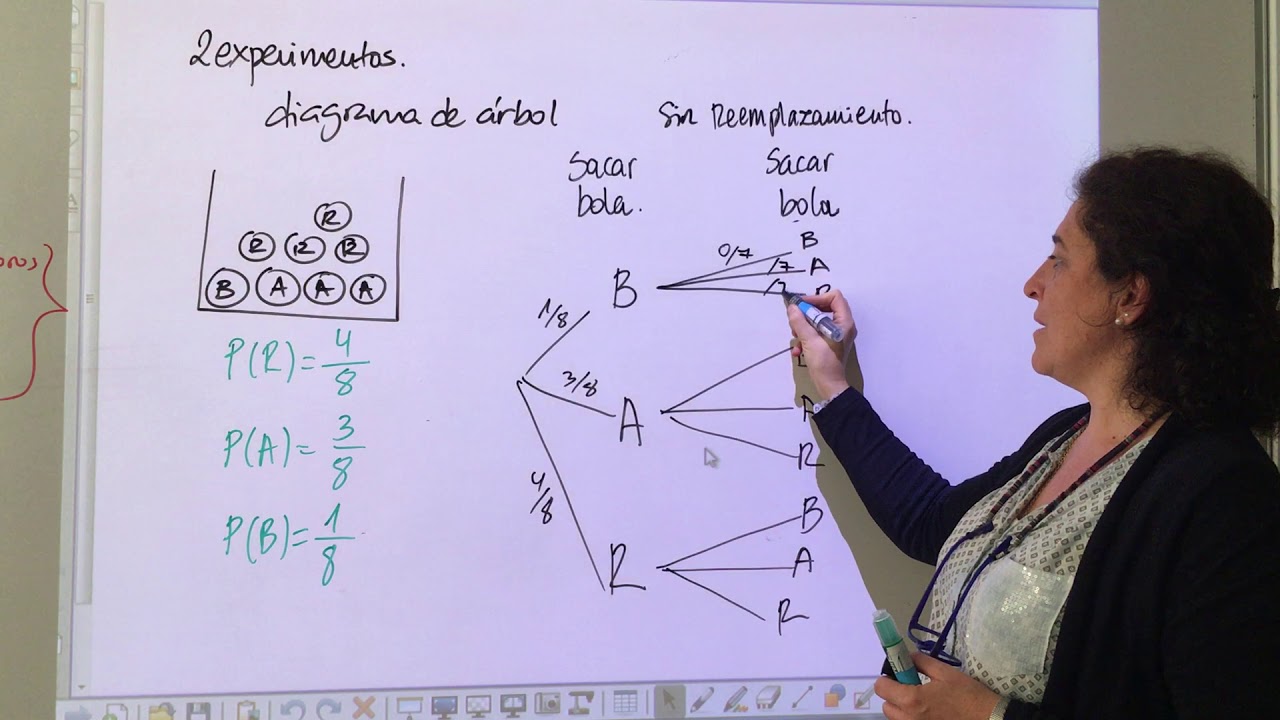 2 experimentos.
diagrama de árbol
Sin Reemplazamiento.
Sacar
bola.
Sacar
bola
R
R R R
B A A A
P(R)=4/8
P(A)=3/8
P(B)=1/8
1/8
B
0/7
B
/7
A
/7
3/8
A
A
R
4/8
R
B
A
R